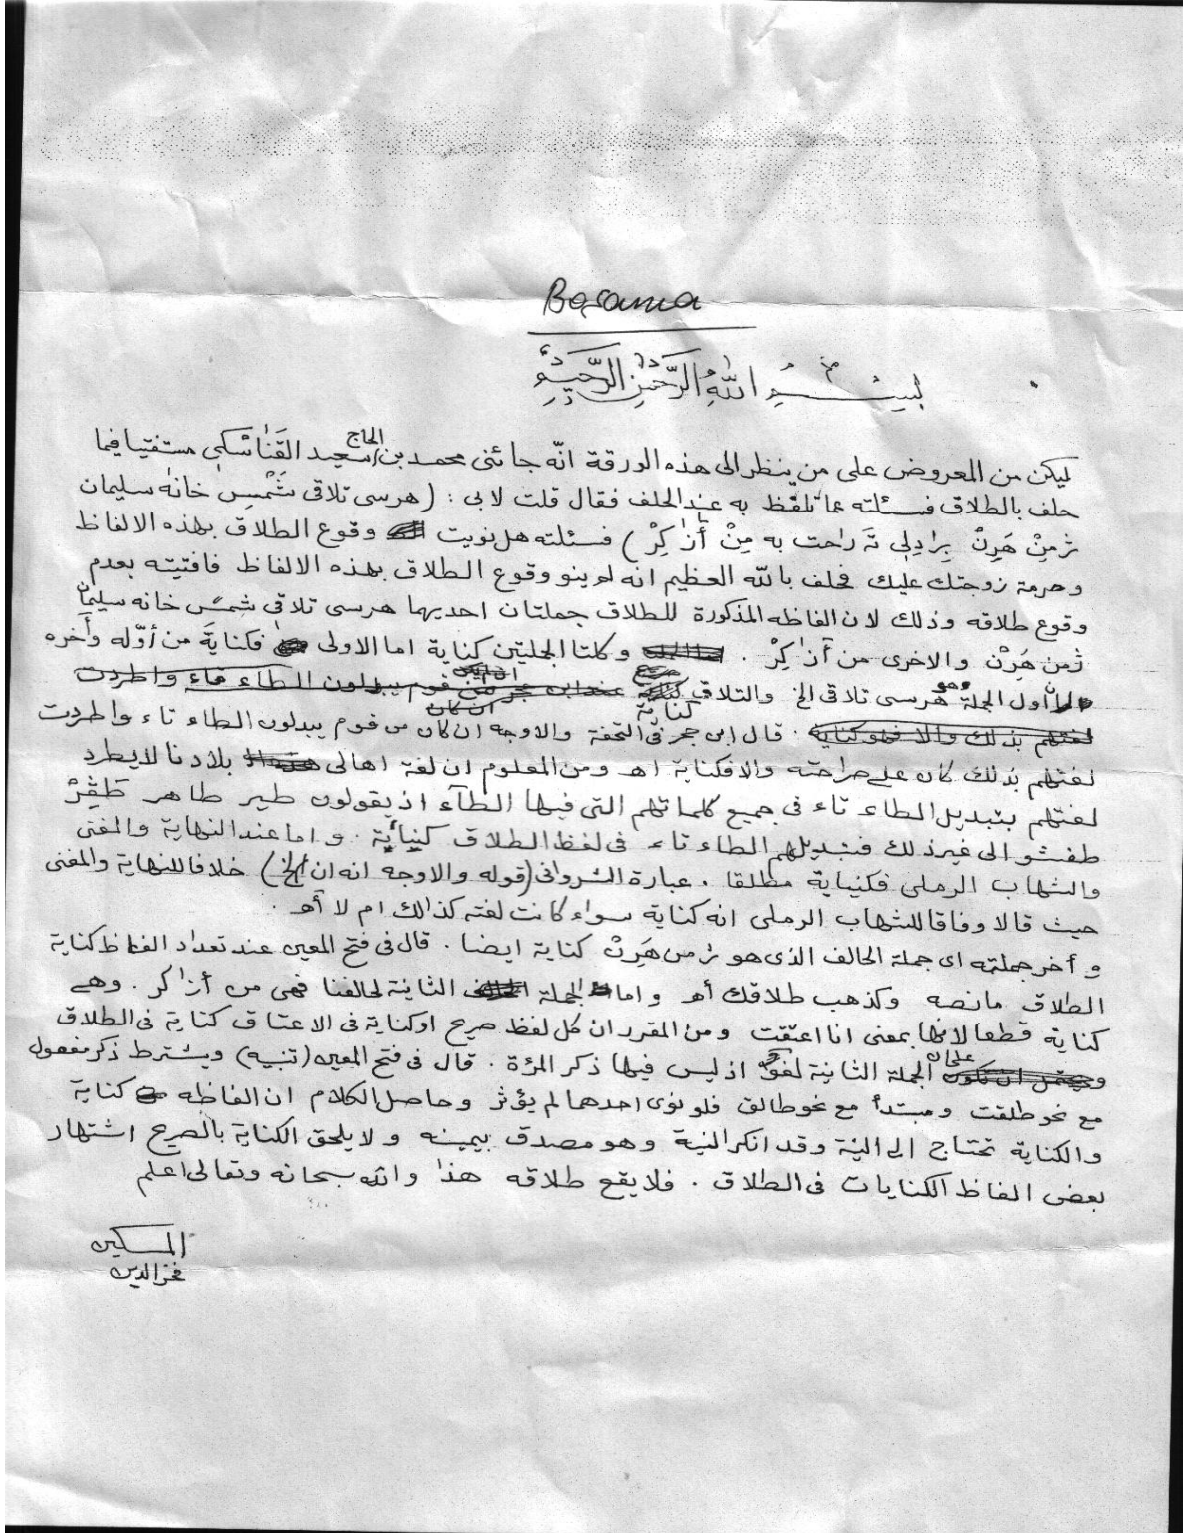 Boşama
بسم الله الرحمن الرحيم
ليكن من المعروض على من ينظر الى هذه الورقة انّه جائنى محمد بن الحاج سعيد القَنَاسْكِى مستفتيا فيما
حلف بالطلاق فسئلته عما تلفّظ به عند الحلف فقال قلت لابى : (هرسى تلاقى شَمْسِ خانه سليمان
ژمِنْ هَرِنْ بِرَادِلِى تَه راحت به مِنْ أَزَا كِرْ) فسئلته هل نويت وقوع الطلاق بهذه الالفاظ
وحرمة زوجتك عليك فحلف بالله العظيم انه لم ينو وقوع الطلاق بهذه الالفاظ فافتيته بعدم
وقوع طلاقه وذلك لان الفاظه المذكورة للطلاق جملتان احديهما هرسى تلاقى شمس خانه سليمان
ژمن هَرِنْ والاخرى من أزا كِرْ . وكلتا الجملتين كناية اما الاولى فكناية من أوّله وأخره
أول الجملة وهو هرسى تلاقى الخ والتلاق كناية
قال ابن حجر فى التحفة والاوجه ان كان من قوم يبدلون الطاء تاء واطردت
لغتهم بذلك كان على صراحته والا فكناية اهـ ومن المعلوم ان لغة اهالى بلادنا لا يطرد
لغتهم بتبديل الطاء تاء فى جميع كلماتهم التى فيها الطآء اذ يقولون طير طاهر
طفشو الى غير ذلك فتبديلهم الطاء تاء فى لفظ الطلاق كناية . واما عند النهاية والمغنى
والشهاب الرملى فكناية مطلقا . عبارة الشروانى (قوله والاوجه انه ان الخ) خلافا للنهاية والمغنى
حيث قالا وفاقا للشهاب الرملى انه كناية سواء كانت لغته كذالك ام لا أهـ .
وأخر جملته اى جملة الحالف الذى هو ژمن هَرِنْ كناية ايضا . قال فى فتح المعين عند تعداد الفاظ كناية
الطلاق ما نصه وكذهب طلاقك أهـ واما الجملة الثانية لحالفنا فهى من أزا كر . وهى
كناية قطعا لانها بمعنى انا اعتقت ومن المقرر ان كل لفظ صريح او كناية فى الاعتاق كناية فى الطلاق
على ان الجملة الثانية لغو اذ ليس فيها ذكر المرٔة . قال فى فتح المعين (تنبيه) ويشترط ذكر مفعول
مع نحو طلقت ومبتدأ مع نحو طالق فلو نوى احدهما لم يؤثر وحاصل الكلام ان الفاظه كناية
والكناية تحتاج الى النية وقد انكر النية وهو مصدق بيمينه ولا يلحق الكناية بالصريح اشتهار
بعض الفاظ الكنايات فى الطلاق . فلا يقع طلاقه هذا والله سبحانه وتعالى اعلم
المسكين
فخر الدين